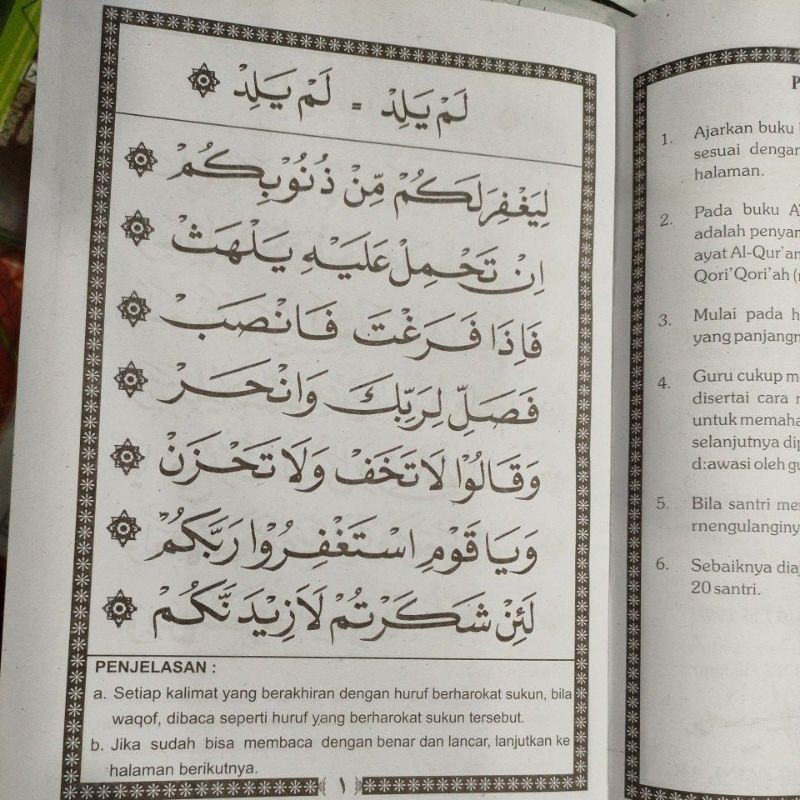 لَمْ يَلِدْ = لَمْ يَلِدْ
لِيَغْفِرَلَكُمْ مِّنْ ذُنُوْبِكُمْ
اِنْ تَحْمِلْ عَلَيْهِ يَلْهَثْ
فَاِذَا فَرَغْتَ فَانْصَبْ
فَصَلِّ لِرَبِّكَ وَانْحَرْ
وَقَالُوْا لَا تَخَفْ وَلَا تَحْزَنْ
وَيَا قَوْمِ اسْتَغْفِرُوْا رَبَّكُمْ
لَئِنْ شَكَرْتُمْ لَاَزِيْدَنَّكُمْ
PENJELASAN :
a. Setiap kalimat yang berakhiran dengan huruf berharokat sukun, bila
waqof, dibaca seperti huruf yang berharokat sukun tersebut.
b. Jika sudah bisa membaca dengan benar dan lancar, lanjutkan ke
halaman berikutnya.
١
P
1. Ajarkan buku
sesuai dengan
halaman.
2. Pada buku
adalah
ayat Al-Qur'an
Qori'Qori'ah
3. Mulai pada
yang
4. Guru cukup
disertai cara
untuk
selanjutnya
d:awasi oleh
5. Bila santri
rnengulanginy
6. Sebaiknya
20 santri.